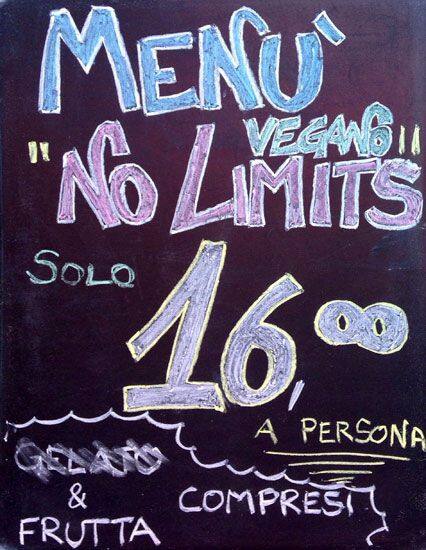 MENU'
VEGANO
"NO LIMITS"
SOLO
16,00
A PERSONA
GELATO
& COMPRESI
FRUTTA